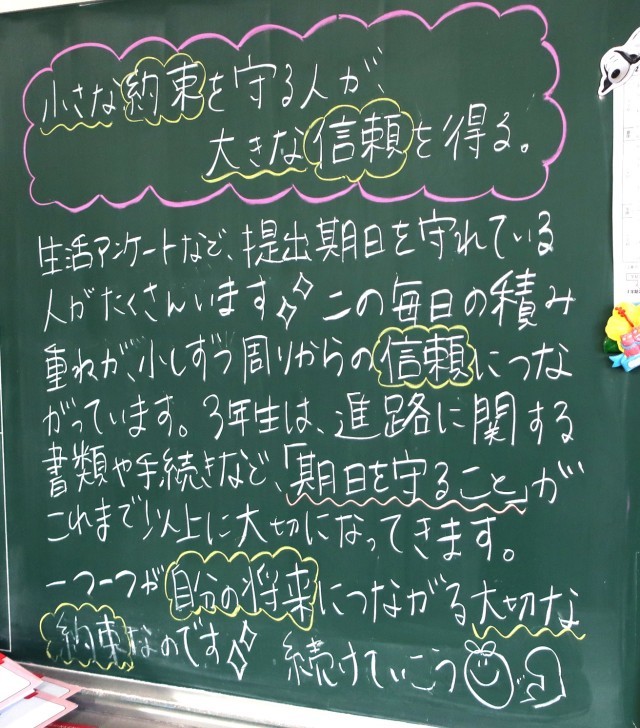 小さな約束を守る人が、
大きな信頼を得る。
生活アンケートなど、提出期日を守れている
人がたくさんいます✨ この毎日の積み
重ねが、小しずつ周りからの信頼につな
がっています。3年生は、進路に関する
書類や手続きなど、「期日を守ること」が
これまで以上に大切になってきます。
一つ一つが自分の将来につながる大切な
約束なのです✨ 続けていこう